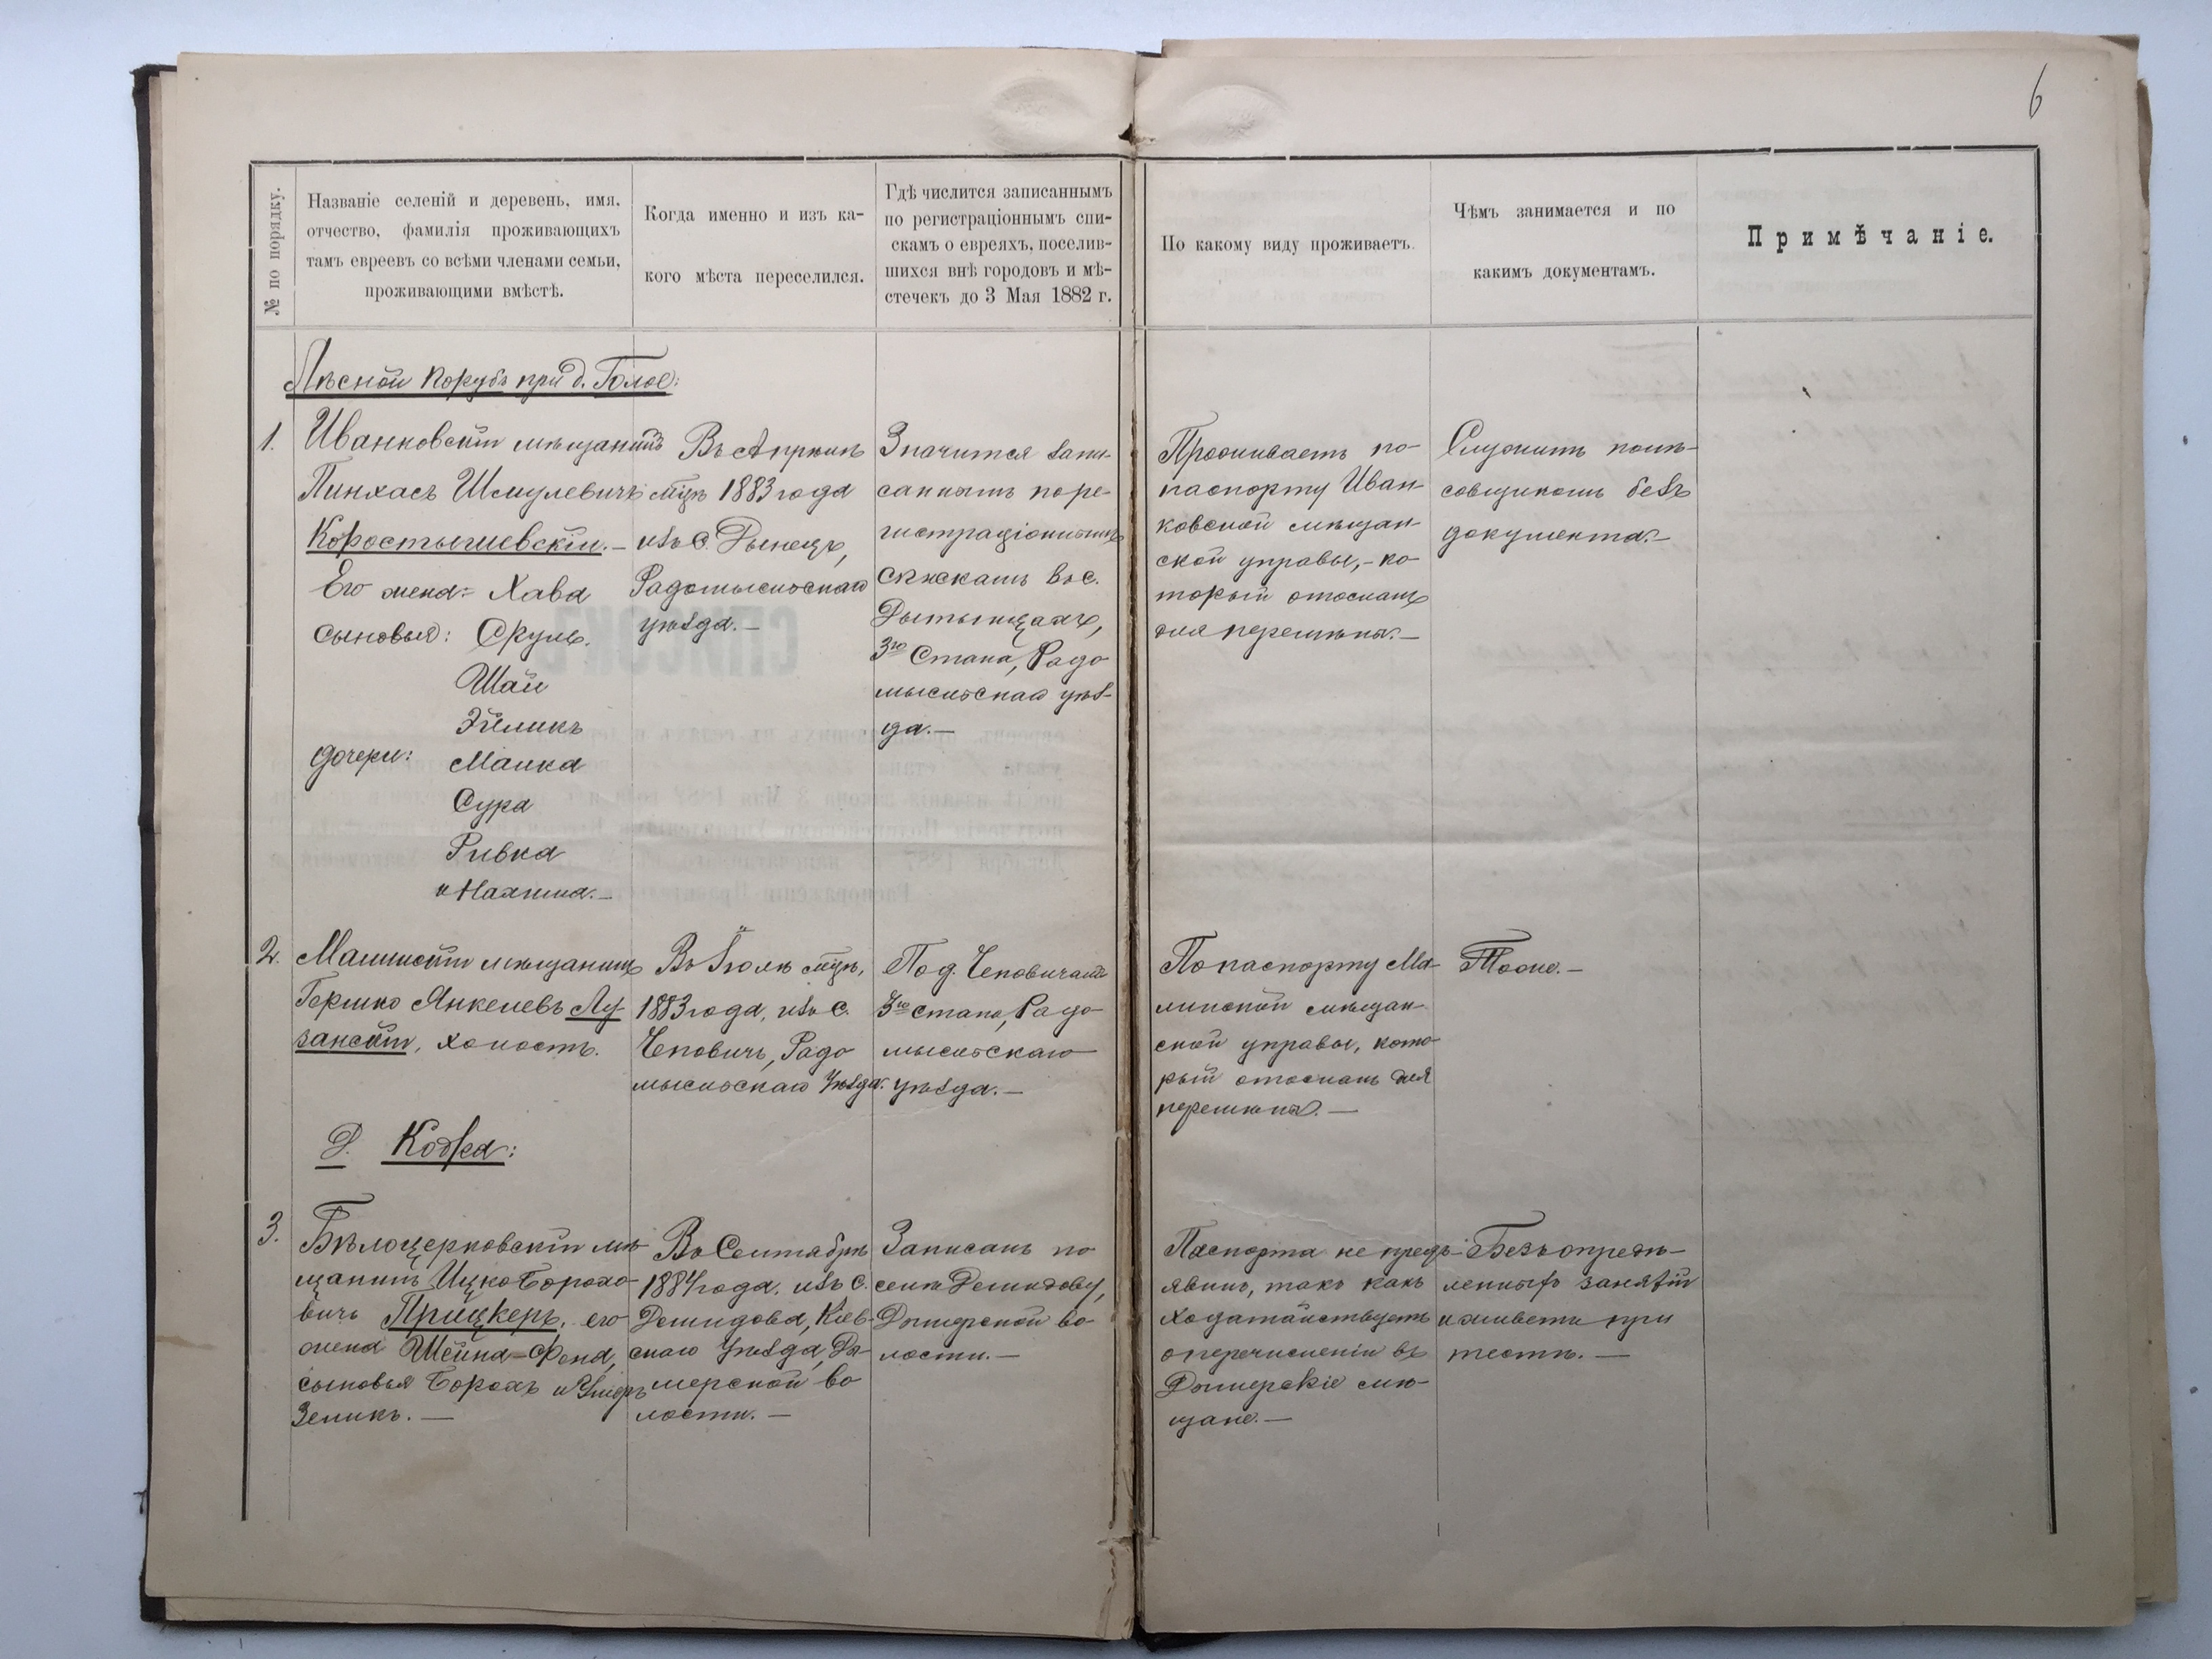 6
№ по порядку.
Названіе селеній и деревень, имя,
отчество, фамилія проживающихъ
тамъ евреевъ со всѣми членами семьи,
проживающими вмѣстѣ.
Когда именно и изъ ка-
кого мѣста переселился.
Гдѣ числится записаннымъ
по регистраціоннымъ спи-
скамъ о евреяхъ, поселив-
шихся внѣ городовъ и мѣ-
стечекъ до 3 Мая 1882 г.
По какому виду проживаетъ.
Чѣмъ занимается и по
какимъ документамъ.
Примѣчаніе.
Лѣсной порубъ при д.
1.
Иванковскій мѣщанинъ
Пинхасъ Шмулевичъ
Коростышевскій.—
Его жена: Хава
сыновья: Сруль.
Шай
Зейликъ
дочери: Малка
Сура
Ривка
и Нахима.—
Въ Апрѣлѣ
мцѣ 1883 года
изъ с.
Радомысльскаго
уѣзда.—
Значится запи-
саннымъ по ре-
гистраціоннымъ
спискамъ въ с.
3го Стана, Радо
мысльскаго уѣз-
да.—
Проживаетъ по
паспорту Иван-
ковской мѣщан-
ской управы,- ко
торый отосланъ
для перемѣны.—
Служитъ полѣ-
совщикомъ безъ
документа.—
2.
Малинскій мѣщанинъ
Гершко Янкелевъ Лу-
занскій, холостъ.
Въ Іюлѣ мцѣ,
1883 года, изъ с.
Чеповичъ, Радо
мысльскаго Уѣзда.
По д. Чеповичамъ
3го стана, Радо
мысльскаго
уѣзда.—
По паспорту Ма-
линской мѣщан-
ской управы, кото-
рый отосланъ для
перемѣны.—
Тоже.—
Д. Кодра:
3.
Бѣлоцерковскій мѣ-
щанинъ Ицко Борохо-
вичъ Прицкеръ, его
жена Шейна-Фейга,
сыновья Борохъ и
Зеликъ.—
Въ Сентябрѣ
1884 года. изъ с.
Демидова, Кіев-
скаго Уѣзда, Ды-
мерской во
лости.—
Записанъ по
селѣ Демидову,
Дымерской во-
лости.—
Паспорта не предъ-
явилъ, такъ какъ
ходатайствуетъ
о перечисленіи въ
Дымерскіе мѣ-
щане.—
Безъ опредѣ-
ленныхъ занятій
и живетъ при
тестѣ.—